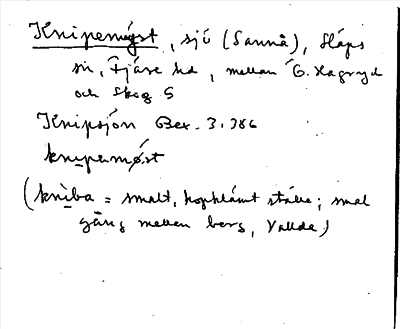 Knipemyst, sjö (Sannå), Släps
sn, Fjäre hd, mellan G. Hagryd
och Skog S
Knipsjön Bex. 3.386
knipemøst
(kniba = smalt, hopklämt ställe; smal
gång mellan berg, Vallda)